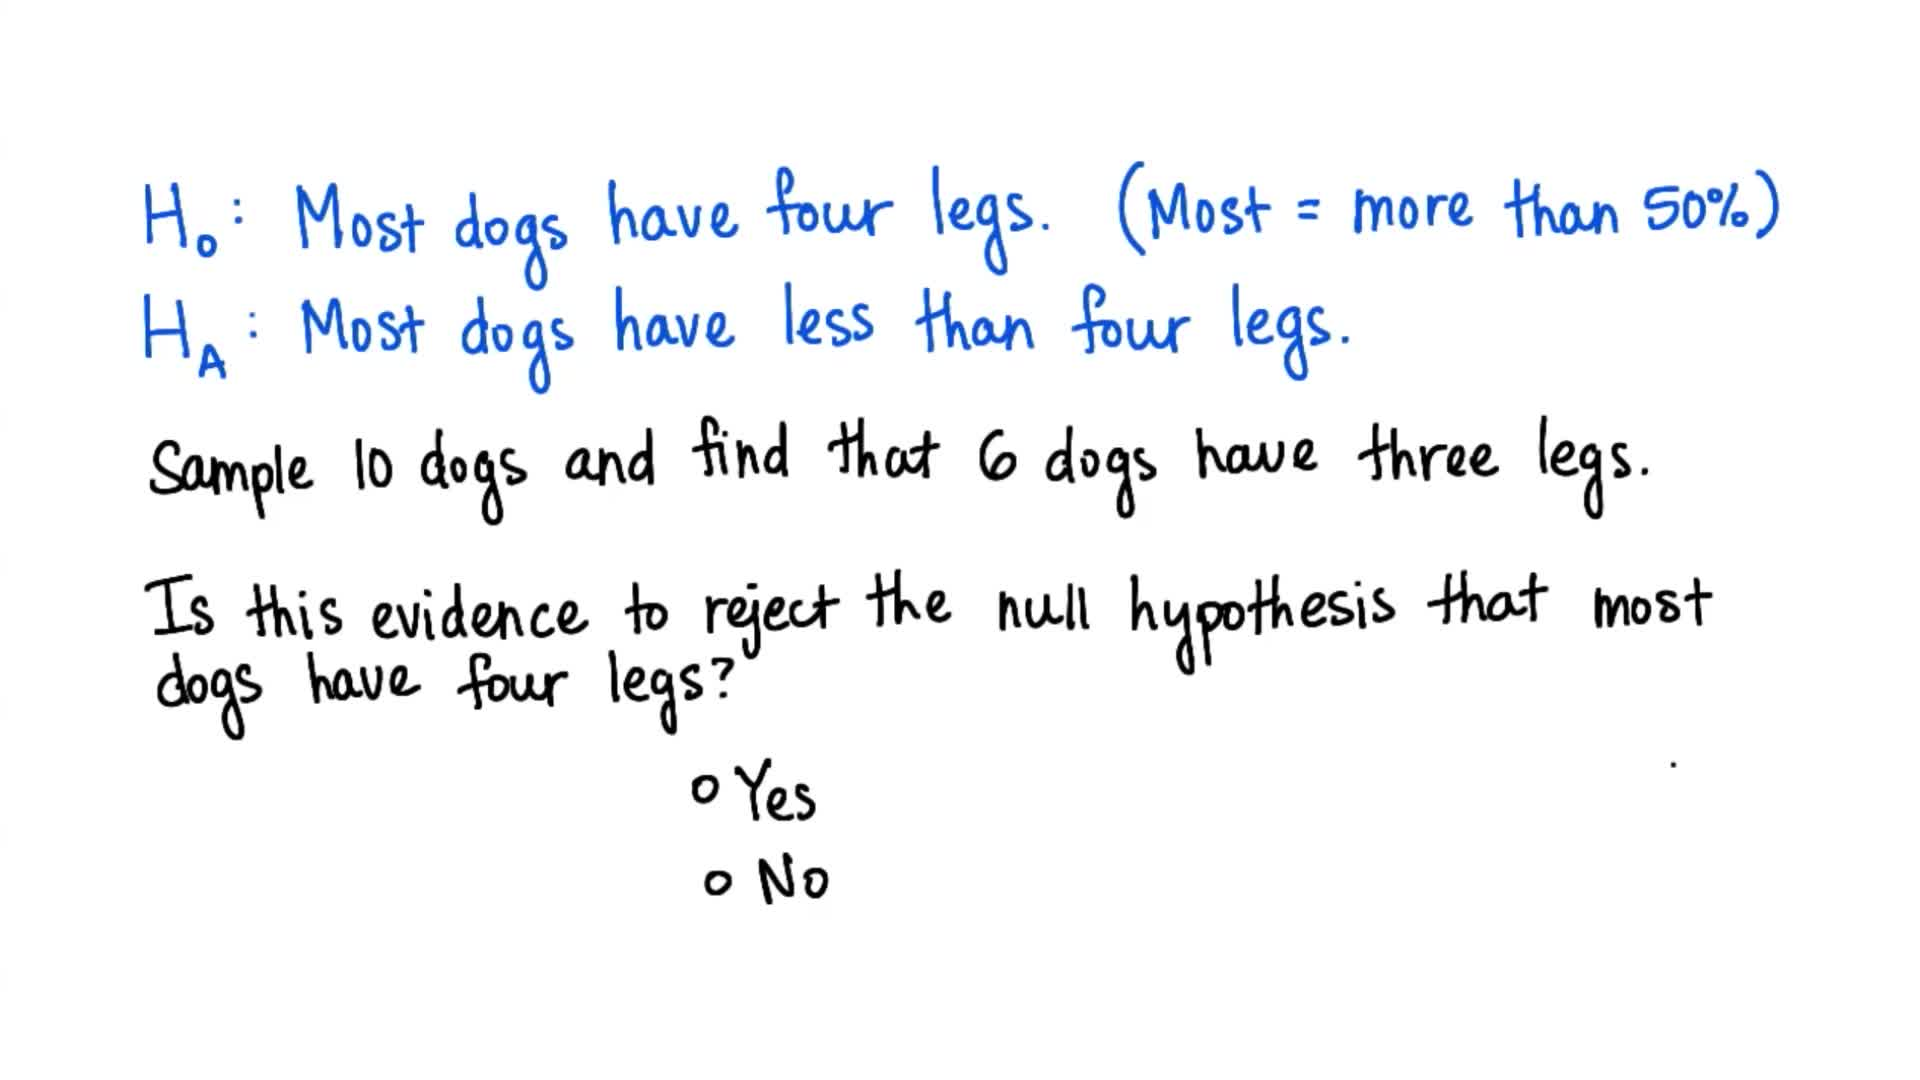 H₀: Most dogs have four legs. (Most = more than 50%)
H_A: Most dogs have less than four legs.
Sample 10 dogs and find that 6 dogs have three legs.
Is this evidence to reject the null hypothesis that most
dogs have four legs?
o Yes
o No